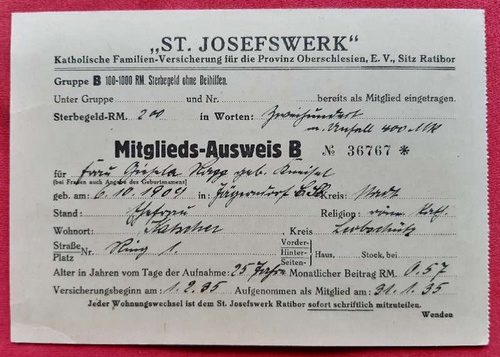 „ST. JOSEFSWERK“
Katholische Familien-Versicherung für die Provinz Oberschlesien, E. V., Sitz Ratibor
Gruppe B 100-1000 RM. Sterbegeld ohne Beihilfen.
Unter Gruppe und Nr. bereits als Mitglied eingetragen.
Sterbegeld-RM. 200 in Worten: Zweihundert
u. Unfall 400 M
Mitglieds-Ausweis B № 36767 *
für Frau Gisela geb.
(bei Frauen auch Angabe des Geburtsnamens)
geb. am 6.10.1909 in: Jägerndorf Kreis: Stadt
Stand: Ehefrau Religion: röm. kath.
Wohnort: Katscher Kreis Leobschütz
Straße Platz Nr. Ring 1. Vorder- Hinter- Seiten- Haus, Stock, bei
Alter in Jahren vom Tage der Aufnahme: 25 Jahre Monatlicher Beitrag RM. 0.57
Versicherungsbeginn am 1.2.35 Aufgenommen als Mitglied am 31.1.35
Jeder Wohnungswechsel ist dem St. Josefswerk Ratibor sofort schriftlich mitzuteilen.
Wenden